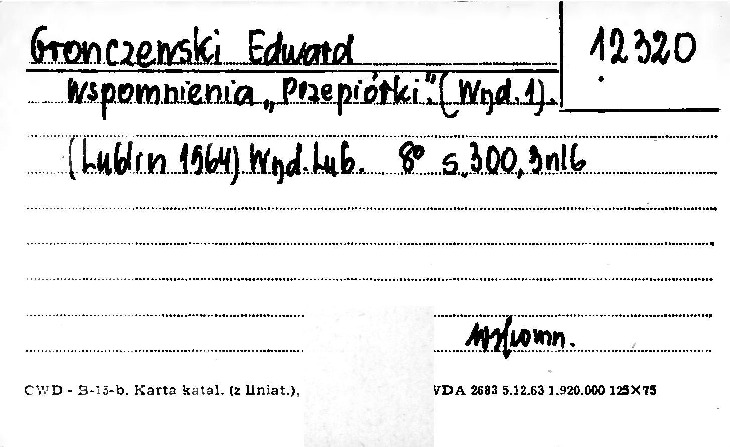 Gronczewski Edward
12320
Wspomnienia „Przepiórki". (Wyd. 1).
(Lublin 1964) Wyd. Lub. 8° s. 300, 3nlb
Wspomn.
CWD - B-15-b. Karta katal. (z liniat.),
WDA 2683 5.12.63 1.920.000 125×75